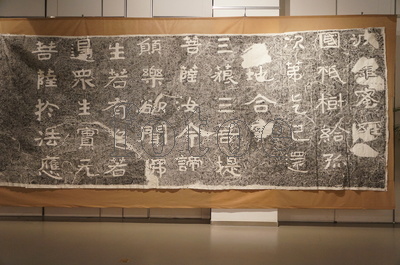 國祇樹給孤
次第乞已還
地合
三藐三菩提
菩薩女今諦
願樂欲聞佛
生若有色若
邊眾生實无
菩薩於法應